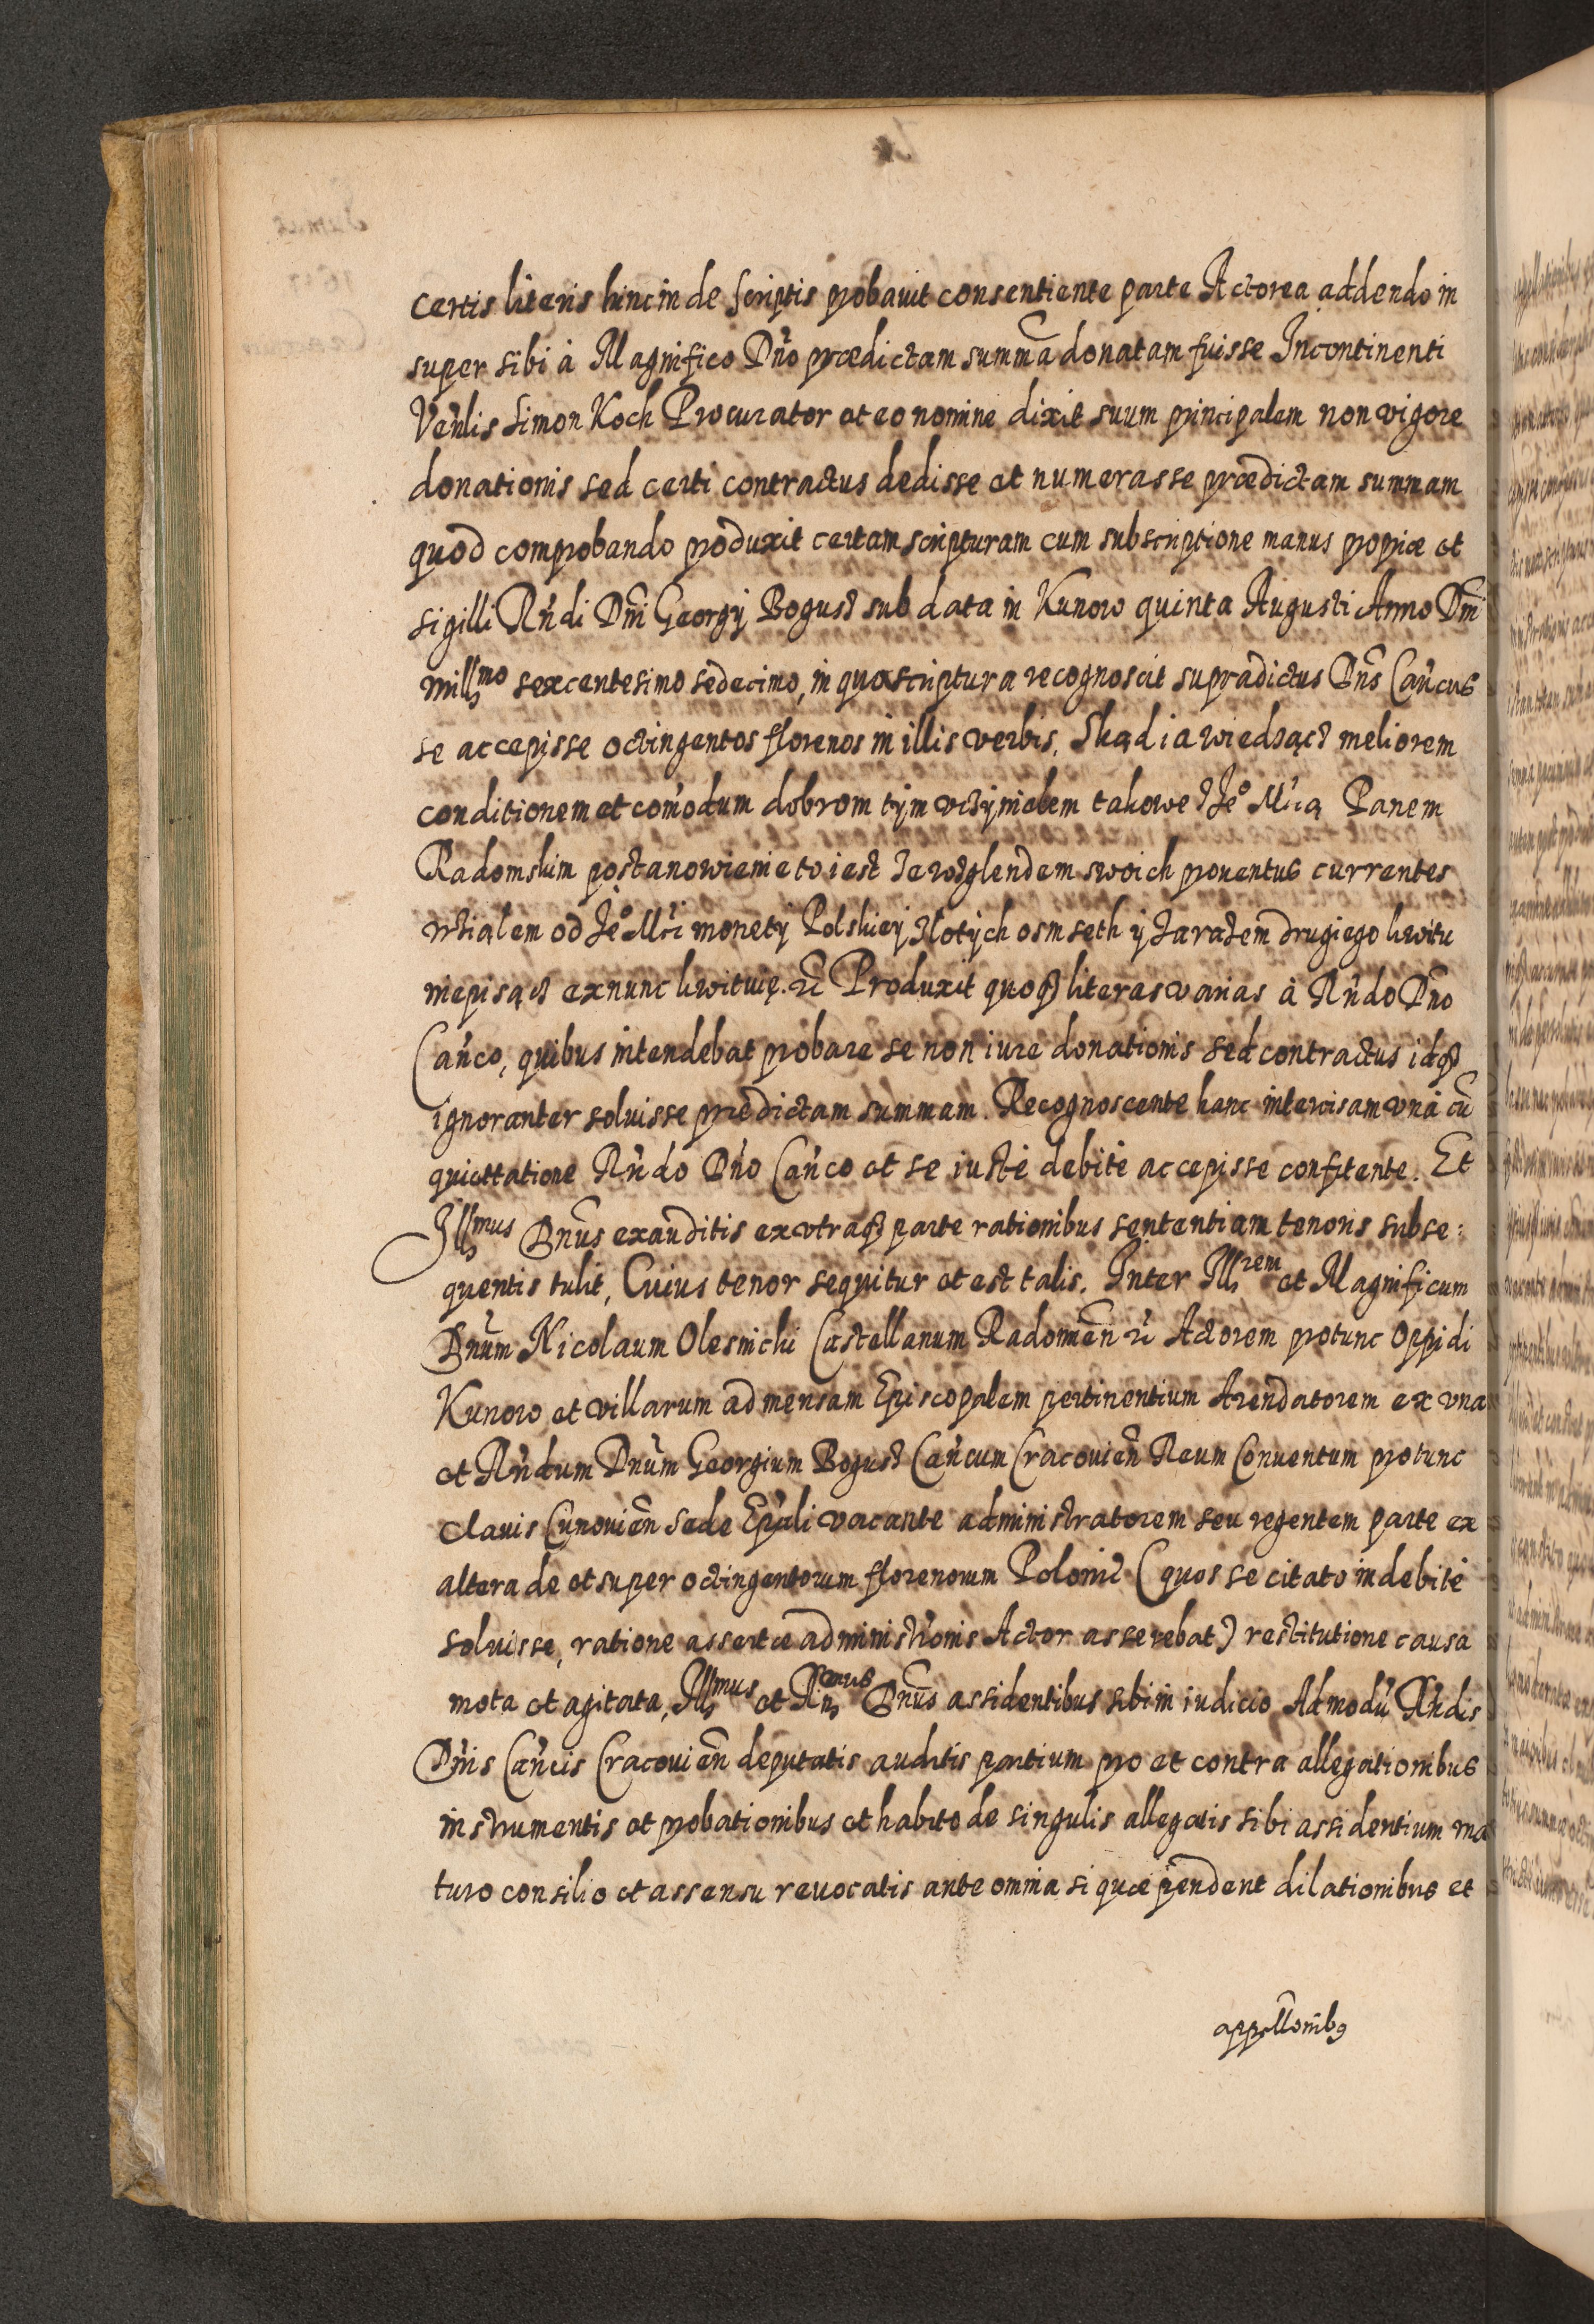 certis literis hincinde scriptis probauit consentiente parte Actorea addendo in
super sibi à Magnifico Dño prædictam summā donatam fuisse Incontinenti
Veńlis Simon Koch Procurator et eo nomine dixit suum principalem non vigore
donationis sed certi contractus dedisse et numerasse prædictam summam
quod comprobando produxit certam scripturam cum subscriptione manus propriæ et
sigilli Rńdi Dñi Georgij Bogusz sub data in Kunow quinta Augusti Anno Dñi
millmo sexcentesimo sedecimo, in qua scriptura recognoscit supradictus Dñs Cańcus
se accepisse octingentos florenos in illis verbis. Skąd ia wiedzącz meliorem
conditionem et comodum dobrom tÿm vczÿnielem takowe z Je° Mćią Panem
Radomskim postanowienie to iest ze wzglendem swoich prouentus currentes
wzialem od Je° Mći monetÿ Polskieÿ złotÿch osm seth ÿ zarazem drugiego kwitu
niepisącz exnunc kwituię. ẽt Produxit quoqȝ literas varias à Rńdo Dńo
Cańco, quibus intendebat probare se non iure donationis sed contractus idqȝ
ignoranter soluisse prædictam summam. Recognoscente hanc intercisam vnà cū
quiettatione Rńdo Dńo Cańco et se iustè debitè accepisse confitente. Et
Illmus Dnus exauditis ex vtraqȝ parte rationibus sententiam tenoris subse:
quentis tulit, Cuius tenor sequitur et est talis. Inter Illrem et Magnificum
Dnum Nicolaum Olesnicki Castellanum Radomieñ ẽt Actorem protunc Oppidi
Kunow et villarum ad mensam Episcopalem pertinentium Arendatorem ex vna
et Rńdum Dnum Georgium Bogusz Cańcum Cracouieñ Reum Conuentum protunc
clauis Cunouieñ Sede Epáli vacante administratorem seu regentem parte ex
altera de et super octingentorum florenorum Polonic (quos se citato indebitè
soluisse, ratione assertæ administŕonis Actor asserebat) restitutione causa
mota et agitata, Illmus et Rnmus Dnus assidentibus sibi in iudicio Admodū Rńdis
Dńis Cańcis Cracouieñ deputatis auditis partium pro et contra allegationibus
instrumentis et probationibus et habito de singulis allegatis sibi assidentium ma
turo consilio et assensu reuocatis ante omnia si quæ pendent dilationibus et
appellonibꝰ